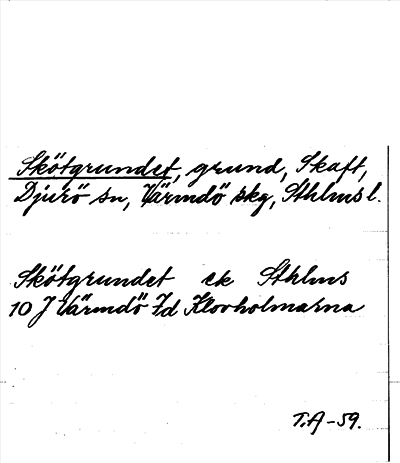 Skötgrundet, grund, Skaft,
Djurö sn, Värmdö skg, Sthlms l.
Skötgrundet ek Sthlms
10 J Värmdö 7d Klovholmarna
T.A -59.